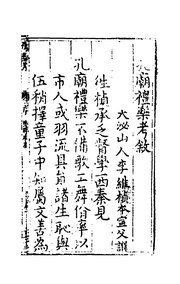 孔廟禮樂考敘
大泌山人李維楨本寧父譔
往楨承乏督學西秦見
孔廟禮樂不備歌工舞佾率以
市人或羽流具員諸生恥與
伍稍擇童子中知屬文善為